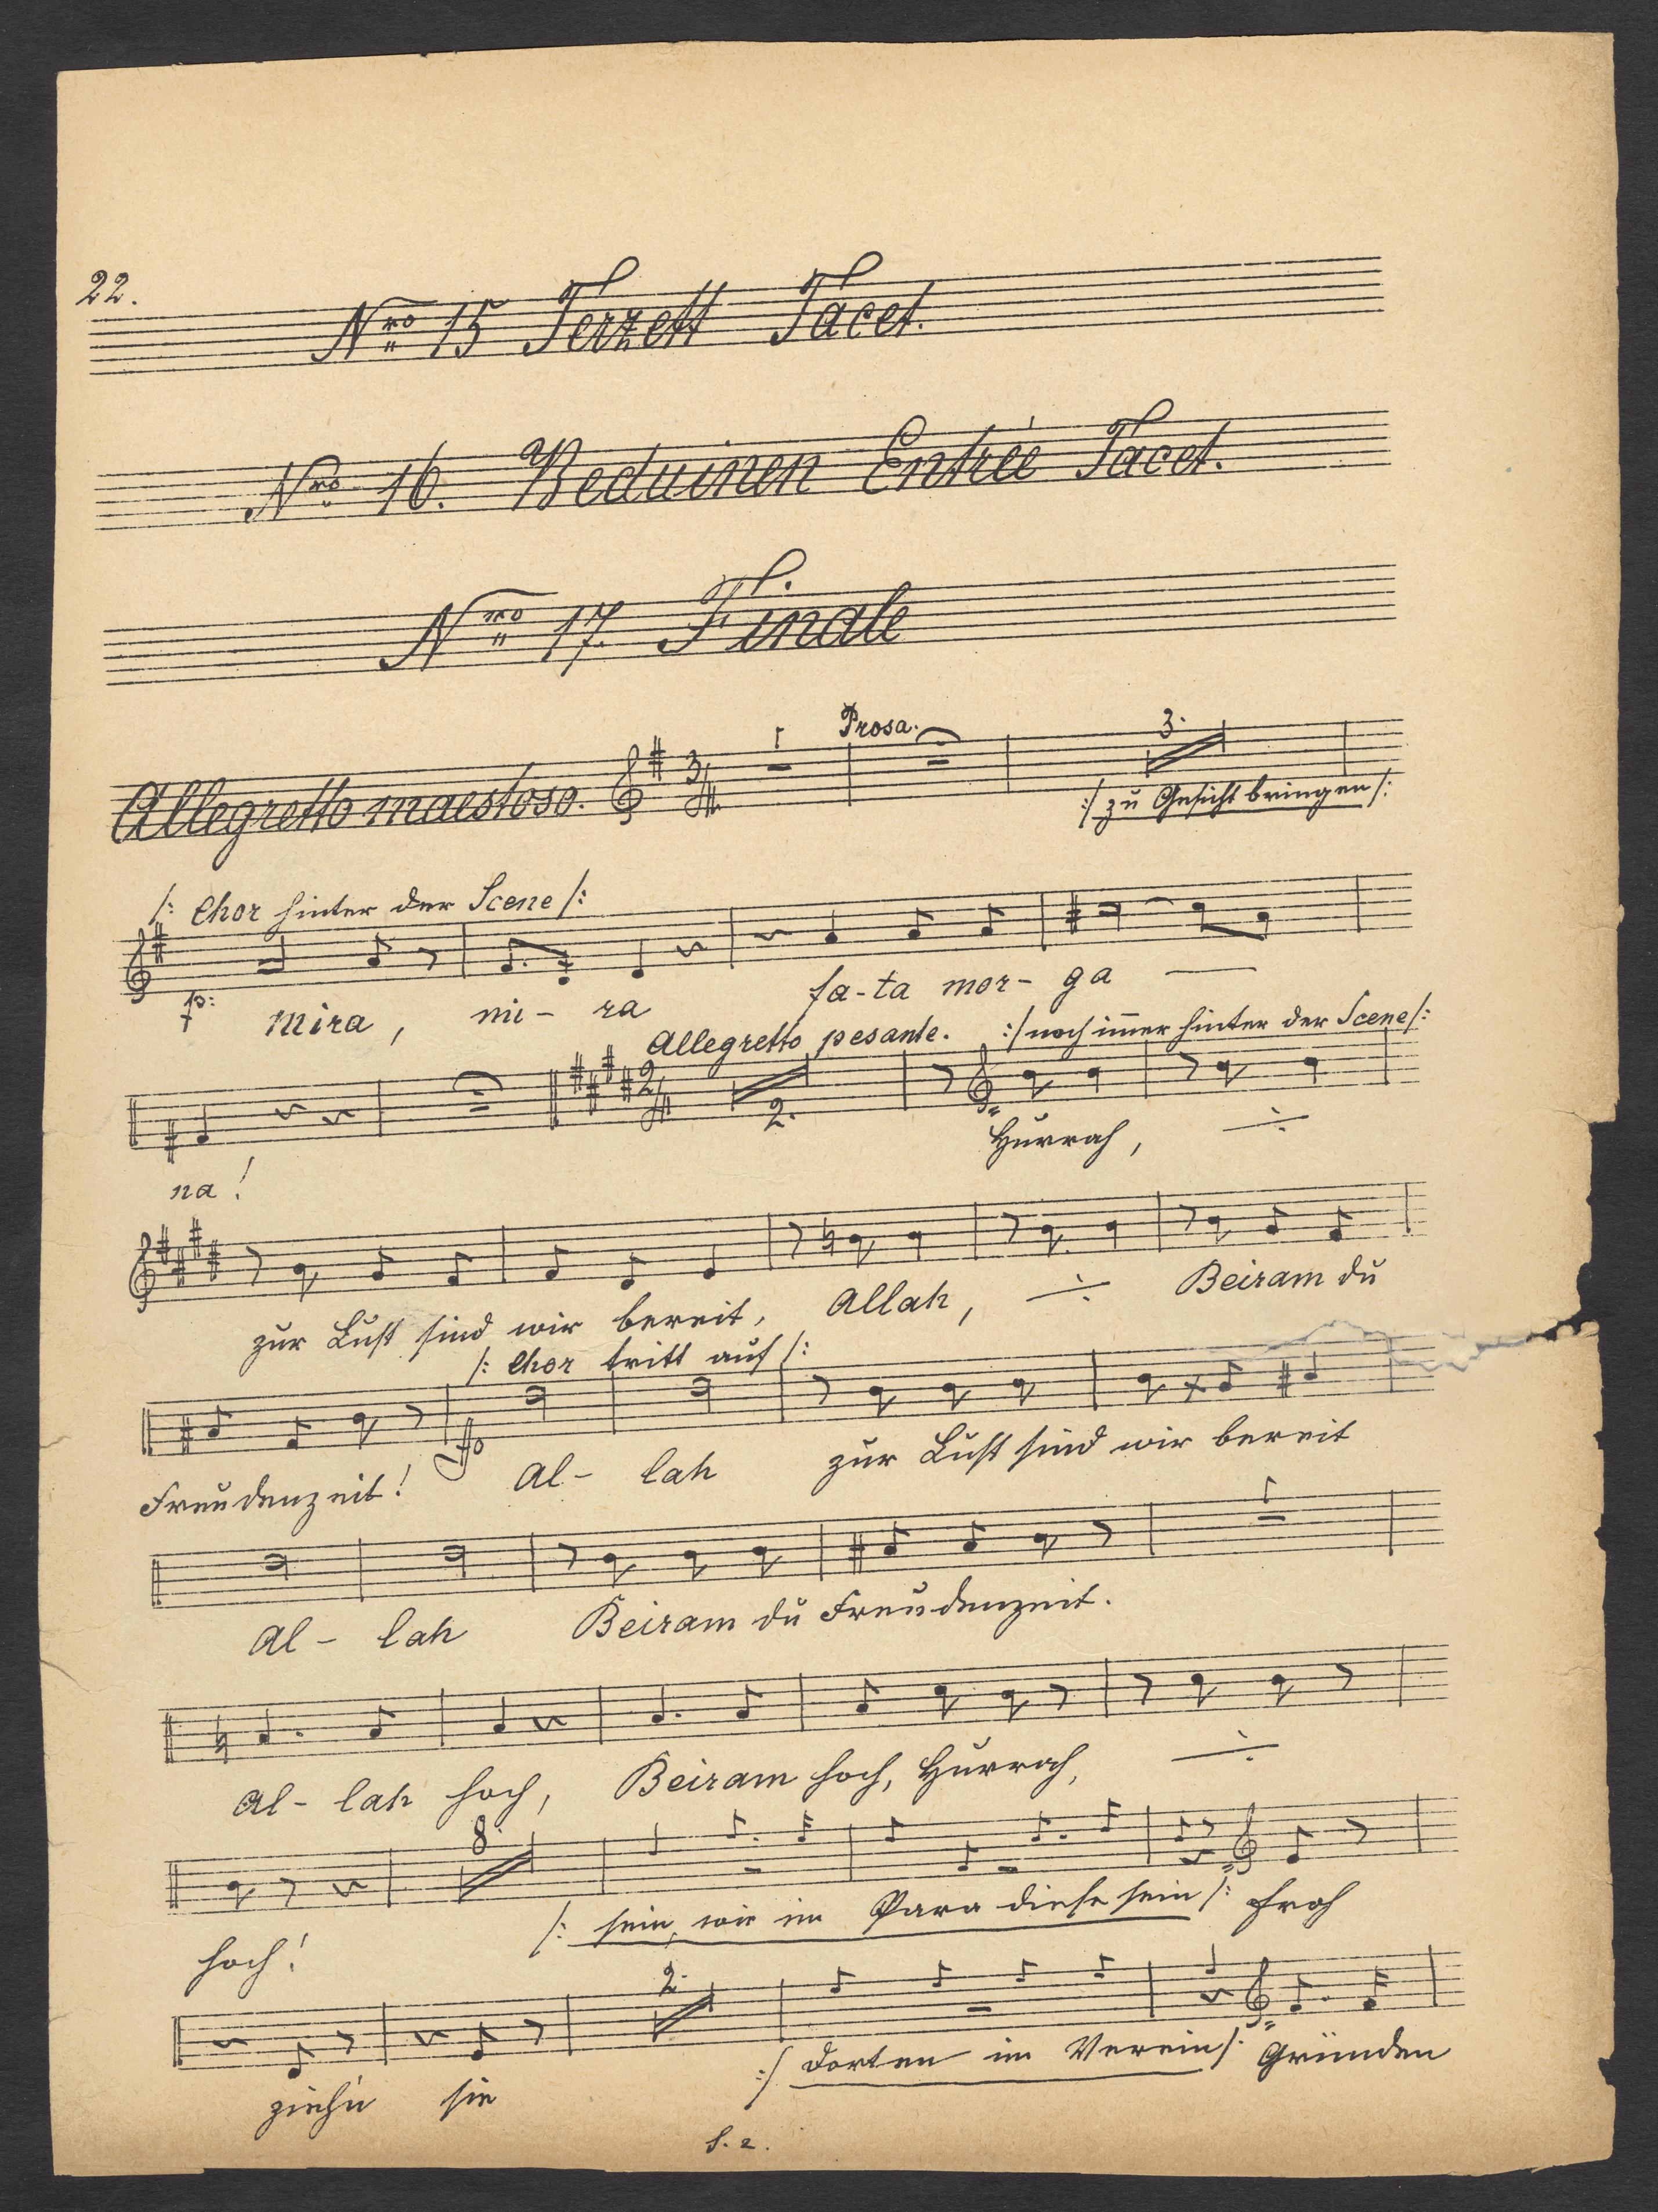 22.
Nro 15 Terzett Tacet.
Nro 16. Beduinen Entrée Tacet.
Nro 17. Finale
Prosa.
1 3.
Allegretto maestoso. 3/4
:/ zu Gesicht bringen /:
/: Chor hinter der Scene /:
p: Mira, mi- ra fa-ta mor- ga
Allegretto pesante. :/ noch im̄er hinter der Scene /:
2/4 2.
na! Hurrah,
zur Lust sind wir bereit, Allah, Beiram du
/: Chor tritt auf /:
Freudenzeit! ff Al- lah zur Lust sind wir bereit
1
Al- lah Beiram du Freudenzeit.
Al- lah hoch, Beiram hoch, Hurrah,
8.
/: sein, wie im Para diese sein /: Froh
hoch!
2.
:/ Dorten im Verein /: Gründen
zieh'n sie